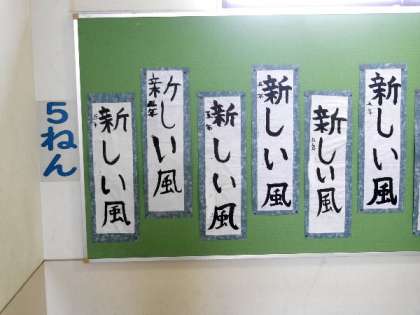 5ねん
新しい風
新しい風
新しい風
新しい風
新しい風
新しい風